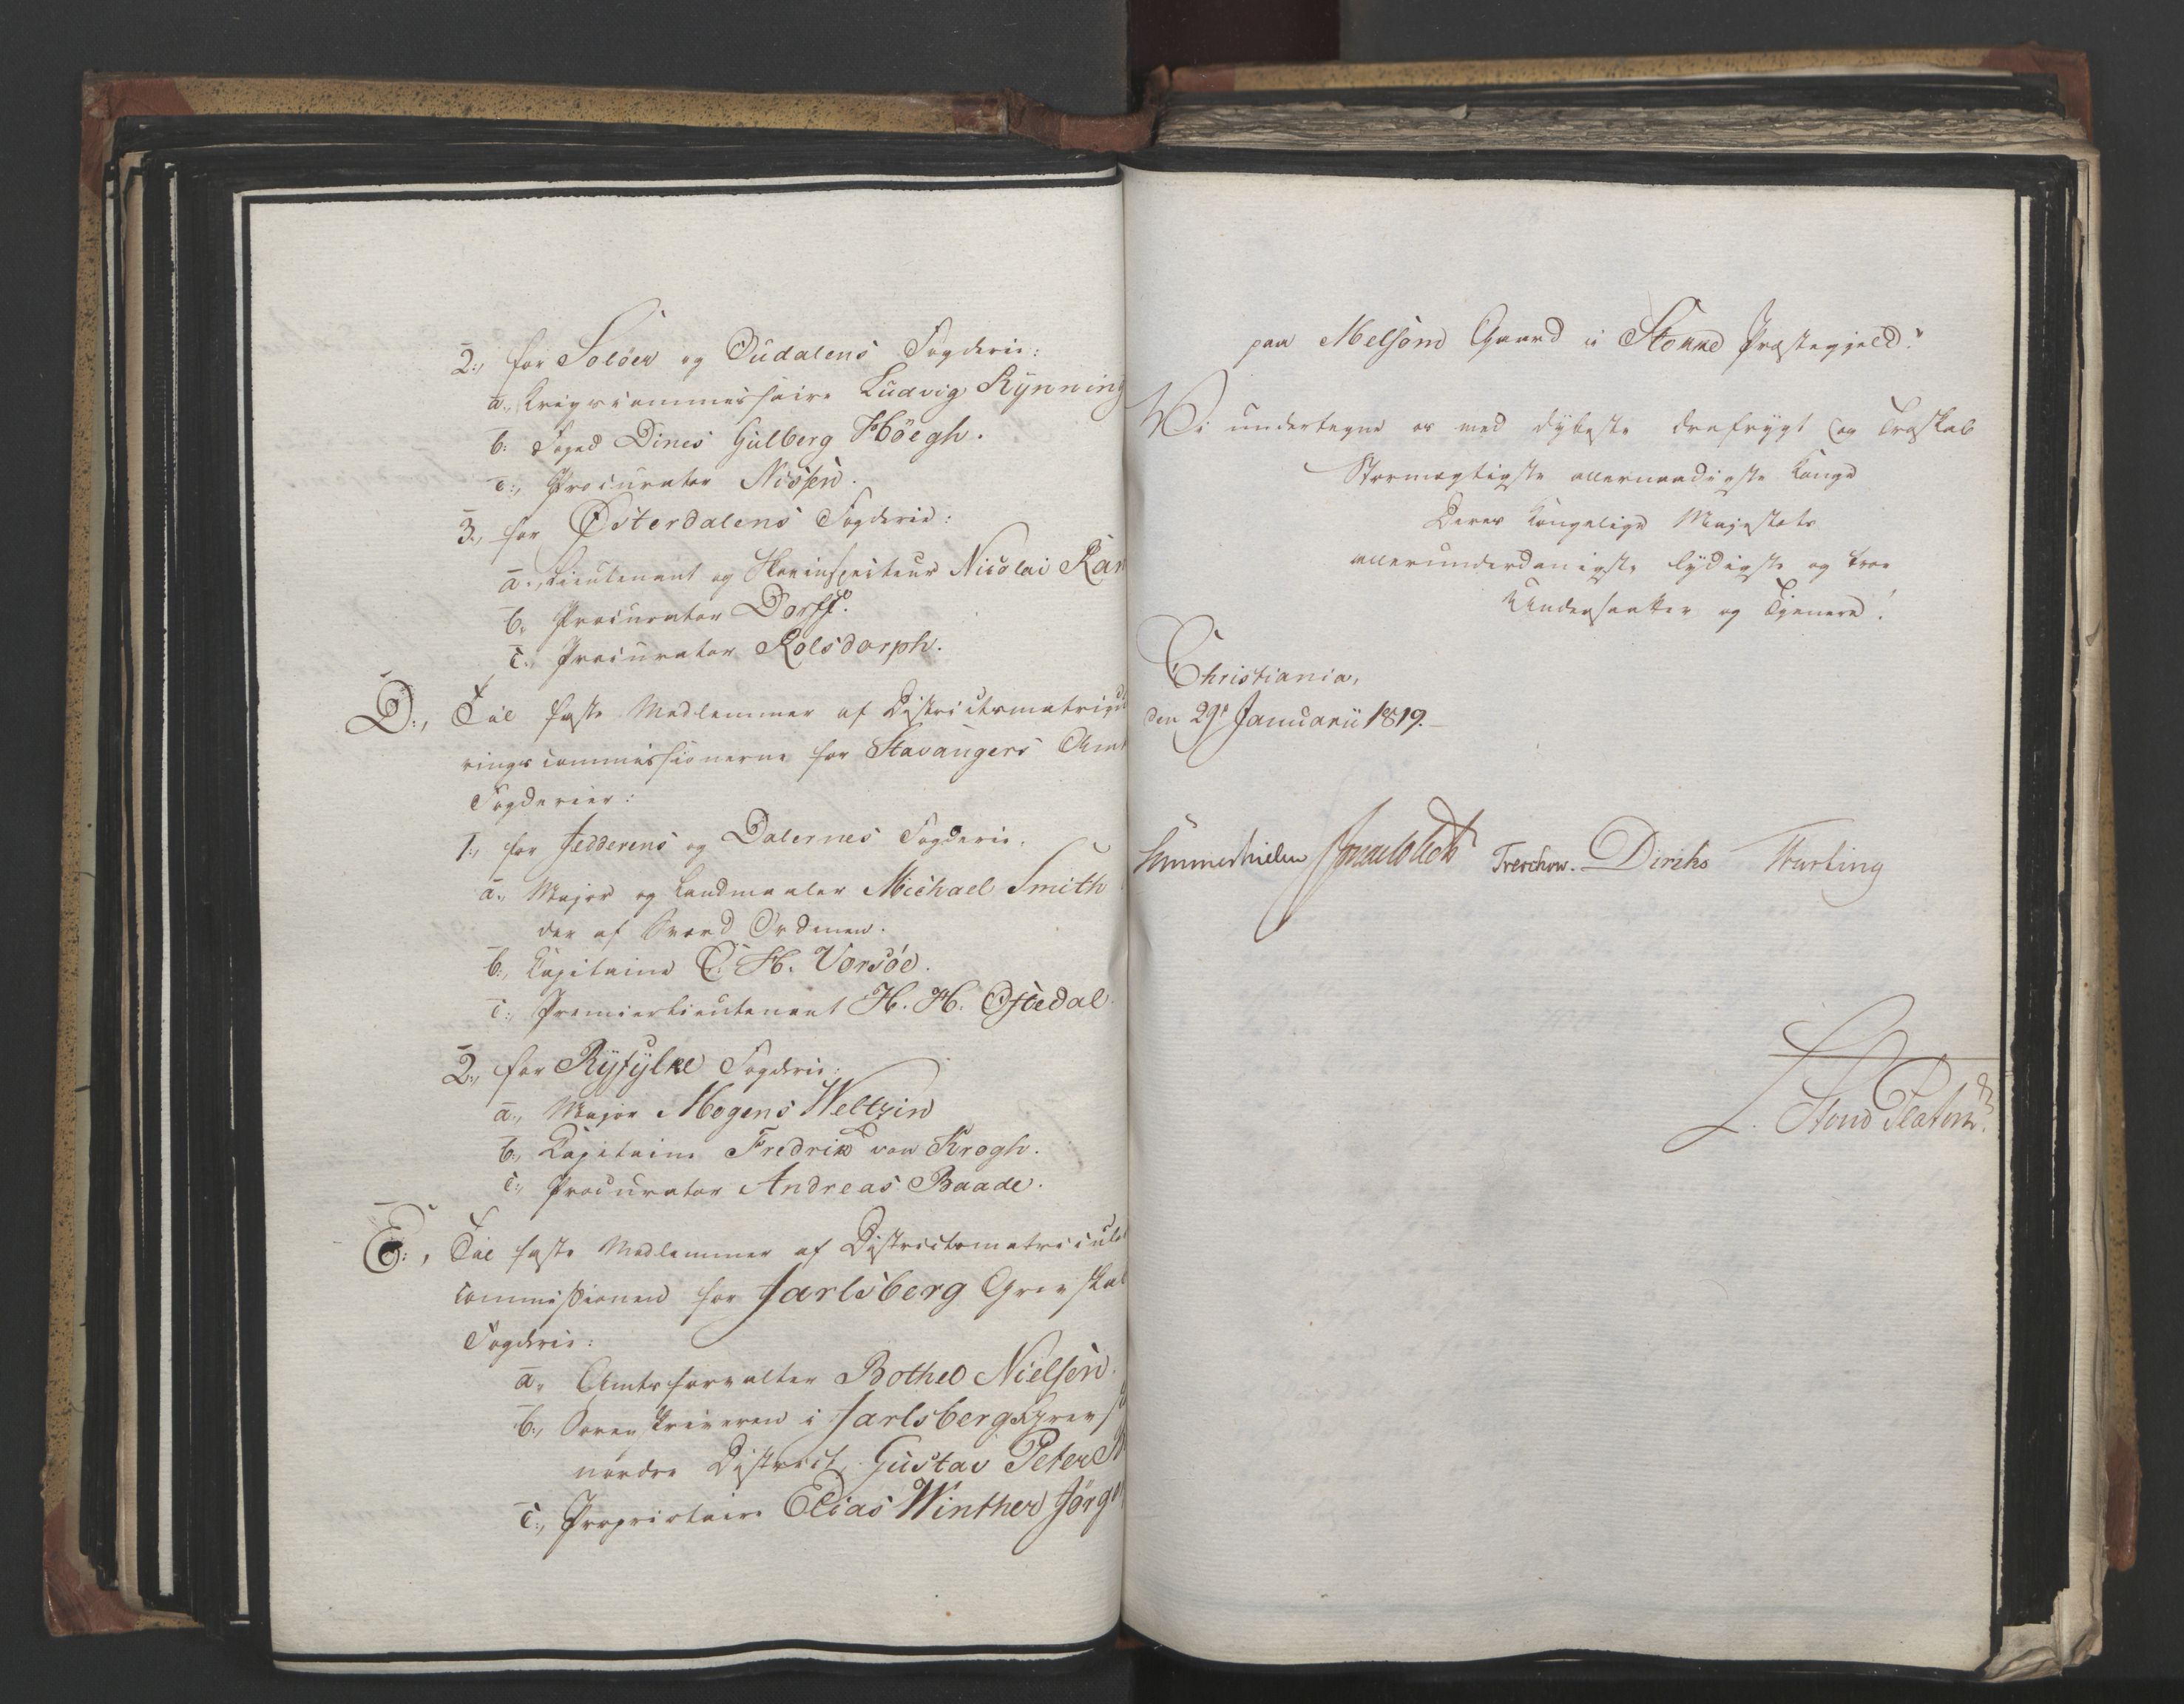 2., for Solöer og Oudalens Fogderie:
a., Krigscommissaire Ludvig Rynning
b: Foged Dines Gulberg Höegh.
c., Procurator Nissen.
3., for Østerdalens Fogderie:
a., Lieutenant og Skovinspecteur Nicolai Ram
b., Procurator Dorff.
c., Procurator Rolsdorph.
D., Til faste Medlemmer af Districtsmatricule
ringscommissionerne for Stavangers Amts
Fogderier:
1., for Jedderens og Dalernes Fogderie.
a., Major og Landmaaler Michael Smith
der af Sværd Ordenen.
b., Capitaine C. H. Vorsöe.
c., Premierlieutenant H. H. Oftedal.
2., for Ryfylke Fogderie:
a., Major Mogens Weltzin
b., Capitaine Fredrik von Krogh.
c., Procurator Andreas Baade.
E., Til faste Medlemmer af Districtsmatricule
commissionen for Jarlsberg Grevskab
Fogderie:
a., Amtsforvalter Bothed Nielsen.
b., Sorenskriveren i Jarlsbergs Grev
nordre District, Gustav Peter
c., Proprietaire Elias Winther Jörg
paa Melsom Gaard i Stokke Præstegjeld."
Vi undertegne os med dybeste Ærefrygt og Troskab
Stormægtigste allernaadigste Konge
Deres Kongelige Majestæts
allerunderdanigste lydigste og troe
Undersaatter og Tjenere!
Christiania,
den 29de Januarii 1819.
Sommerhielm Treschow. Diriks
L. Stoud Platou